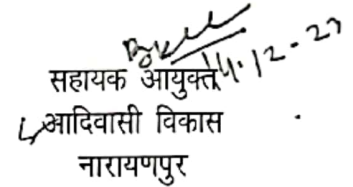 14.12.23
सहायक आयुक्त
आदिवासी विकास
नारायणपुर